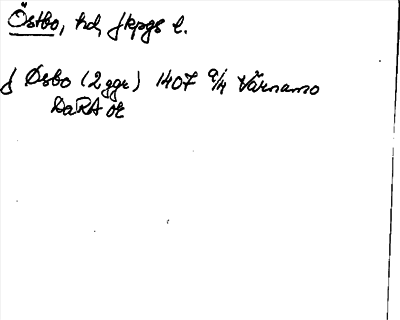 Östbo, hd, Jkpgs l.
J Øsbo (2 ggr) 1407 9/4 Värnamo
DaRA or